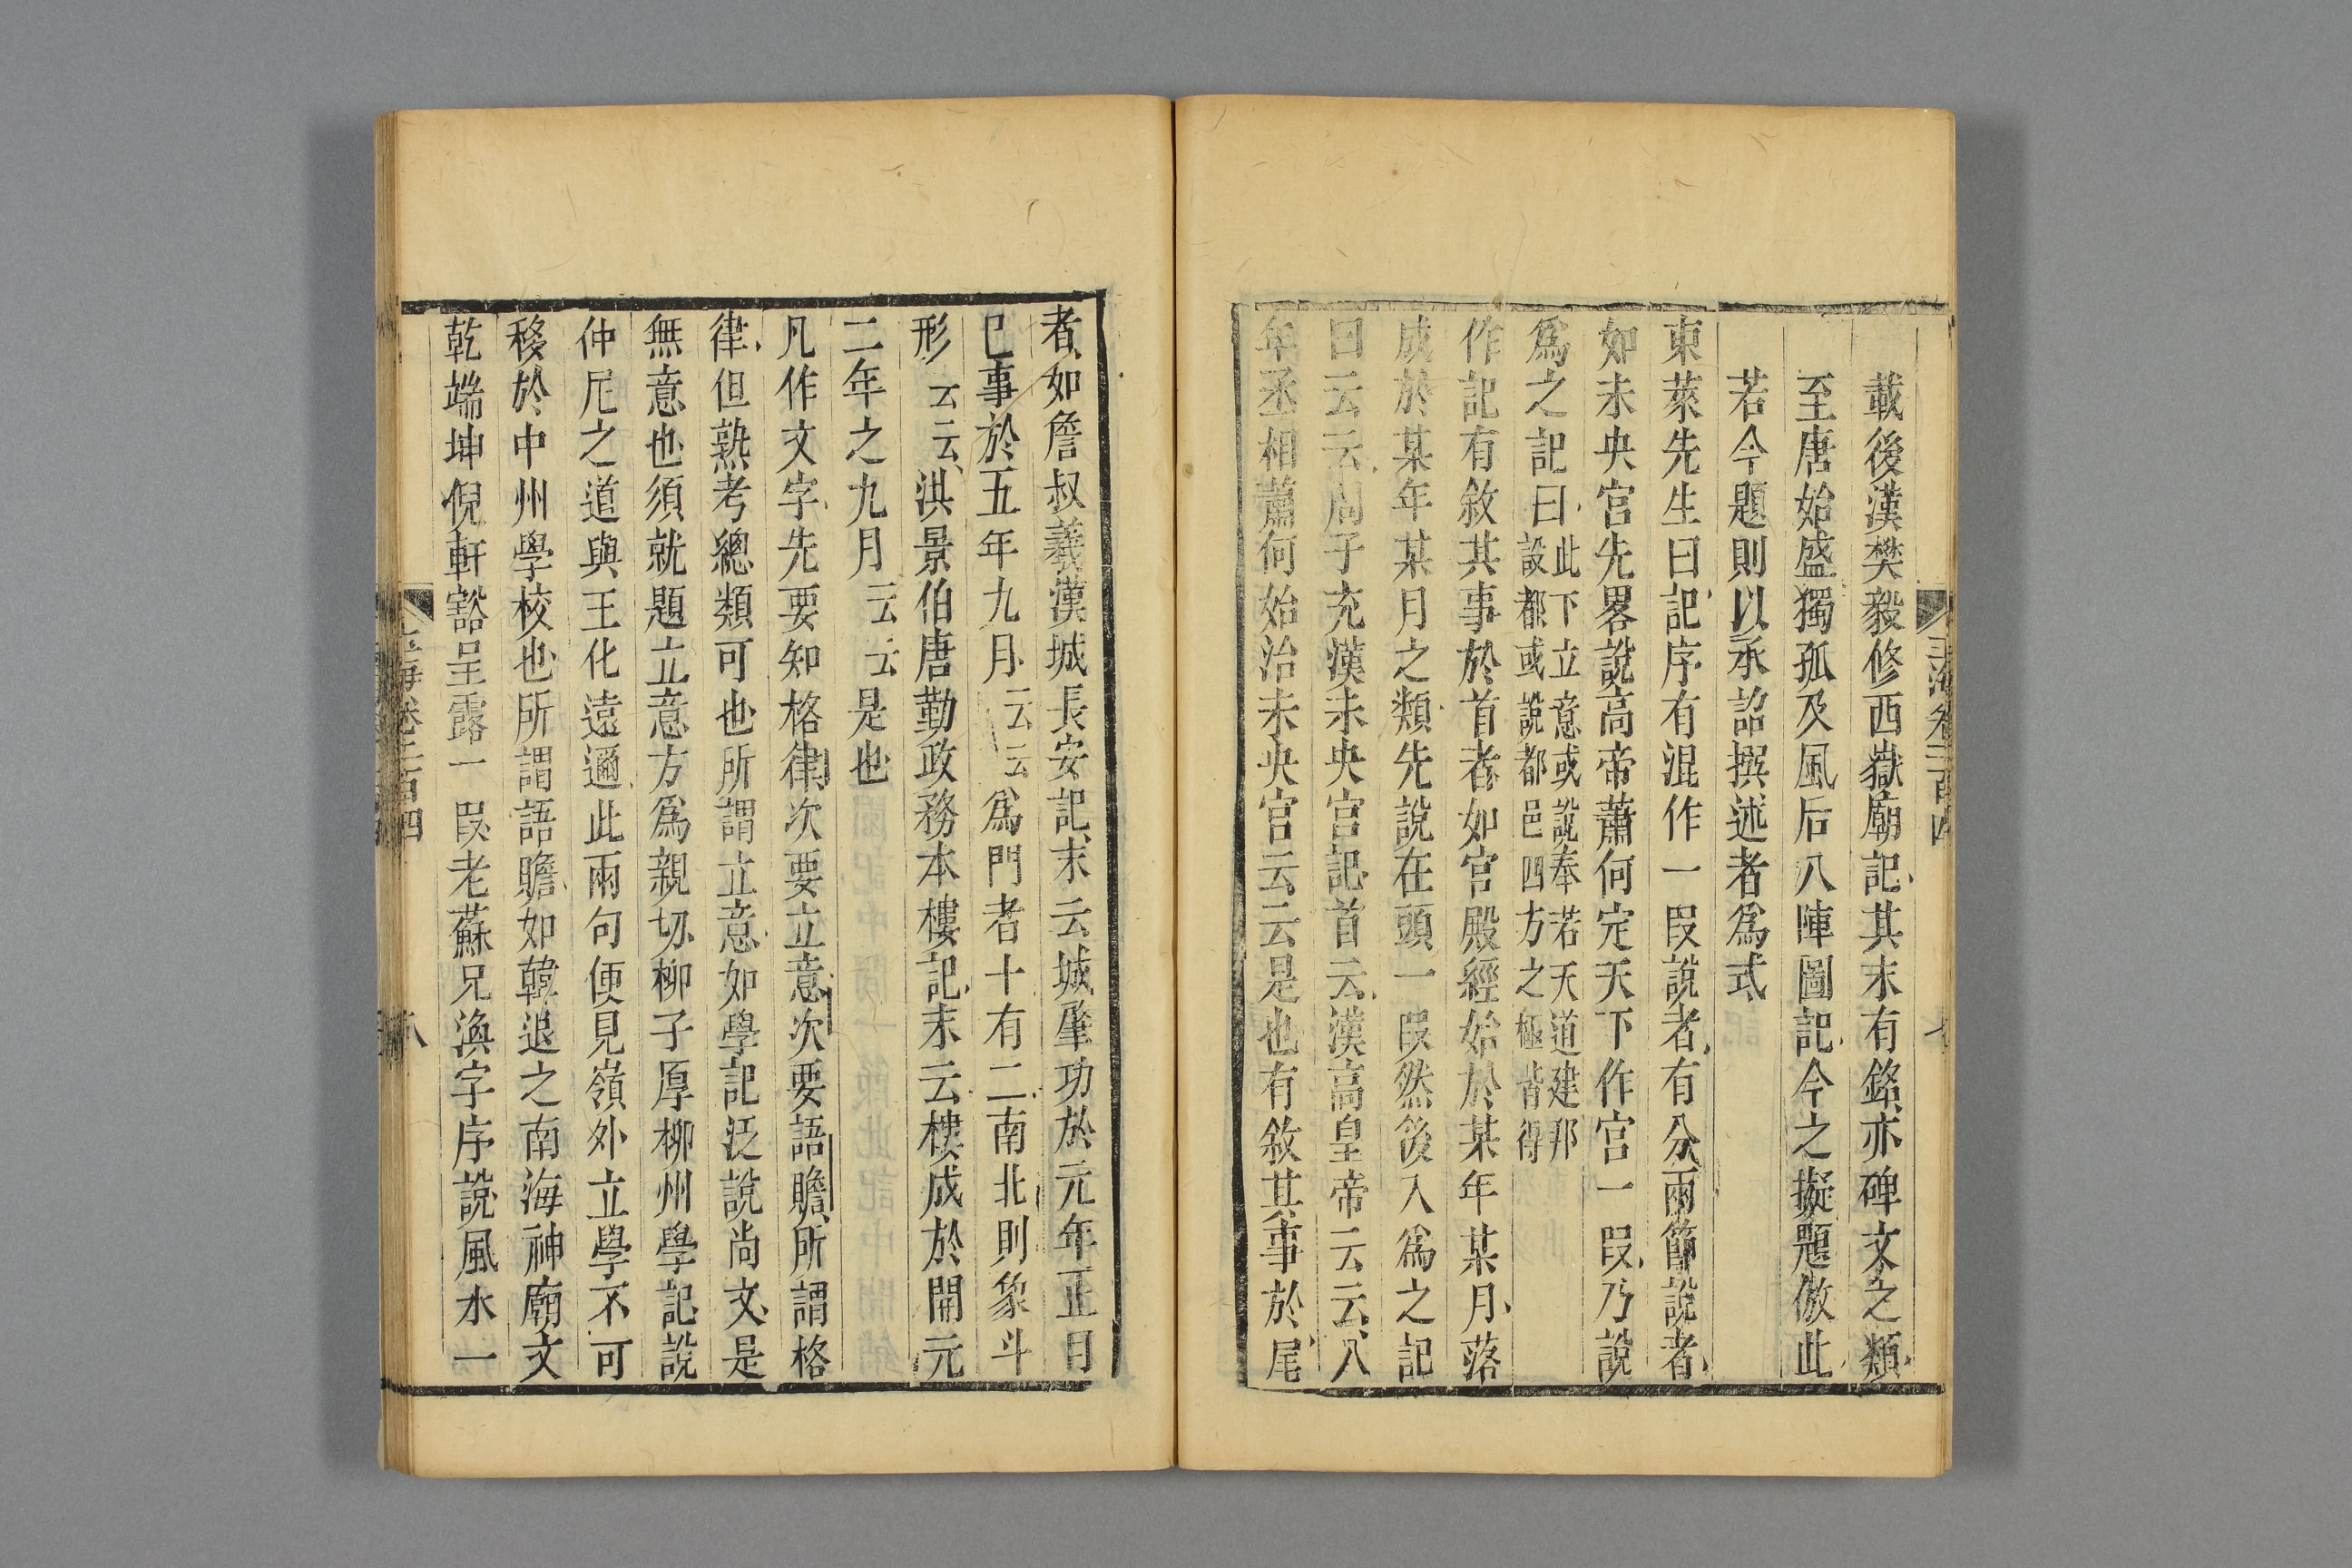 玉海卷二百四
載後漢樊毅修西嶽廟記其末有銘亦碑文之類
至唐始盛獨孤及風后八陣圖記今之擬題倣此
若今題則以承詔撰述者爲式
東萊先生曰記序有混作一段說者有分兩節說者
如未央宮先畧說高帝蕭何定天下作宮一段乃說
爲之記曰此下立意或說奉若天道建邦
設都或說都邑四方之極皆得
作記有敘其事於首者如宮殿經始於某年某月落
成於某年某月之類先說在頭一段然後入爲之記
曰云云周子充漢未央宮記首云漢高皇帝云云八
年丞相蕭何始治未央宮云云是也有敘其事於尾
者如詹叔義漢城長安記末云城肇功於元年正月
已事於五年九月云云爲門者十有二南北則象斗
形云云洪景伯唐勤政務本樓記末云樓成於開元
二年之九月云云是也
凡作文字先要知格律次要立意次要語贍所謂格
律但熟考總類可也所謂立意如學記泛說尚文是
無意也須就題立意方爲親切柳子厚柳州學記說
仲尼之道與王化遠邇此兩句便見嶺外立學不可
移於中州學校也所謂語贍如韓退之南海神廟文
乾端坤倪軒豁呈露一段老蘇兄渙字序說風水一
玉海卷二百四
八